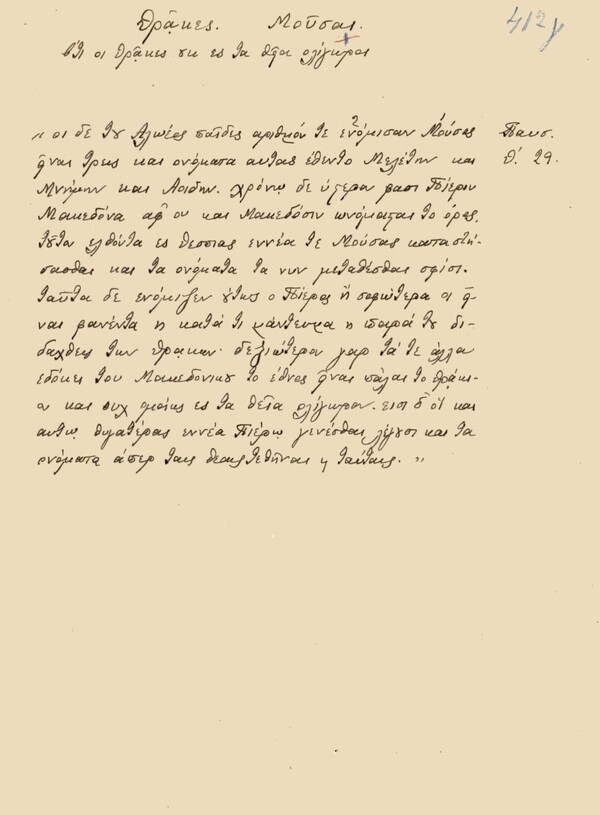 Θρᾷκες. Μοῦσαι. 412γ
ὅτι οι Θρᾷκες ουκ ες τα θεῖα ολίγωροι
„ οι δε του Αλωέως παῖδες αριθμόν τε ενόμισαν Μούσας Παυσ.
εῖναι τρεις και ονόματα αυταις έθεντο Μελέτην και θ'. 29.
Μνήμην και Αοιδην. χρόνῳ δε ύστερον φασι Πίερον
Μακεδόνα αφ' ου και Μακεδόσιν ωνόμασται το όρος,
τοῦτον ελθόντα ες Θεσπιας εννέα τε Μούσας καταστή-
σασθαι και τα ονόματα τα νυν μεταθέσθαι σφίσι.
ταῦτα δε ενόμιζεν ούτως ο Πίερος ἤ σοφώτερα οι εῖ-
ναι φανέντα η κατά τι μάντευμα η παρά του δι-
δαχθεις των Θρᾳκων· δεξιώτερον γαρ τά τε άλλα
εδόκει του Μακεδονικου το έθνος εῖναι πάλαι το Θρᾴκι-
ον και ουχ ομοίως ες τα θεῖα ολίγωρον. εισι δ' οἳ και
αυτῳ θυγατέρας εννέα Πιέρῳ γενέσθαι λέγουσι και τα
ονόματα άπερ ταις θεαις τεθῆναι και ταύταις. „